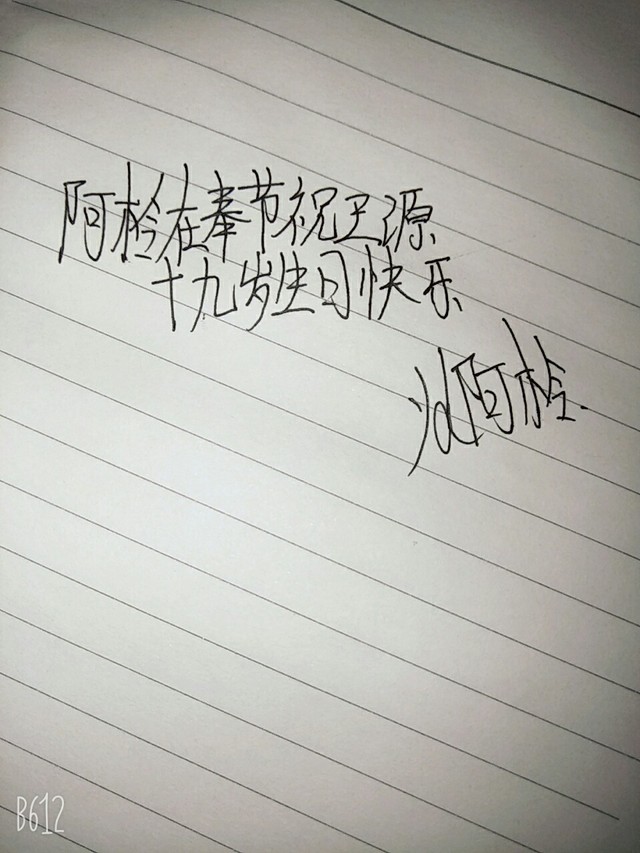 阿柃在奉节祝王源
十九岁生日快乐
阿柃.
B612